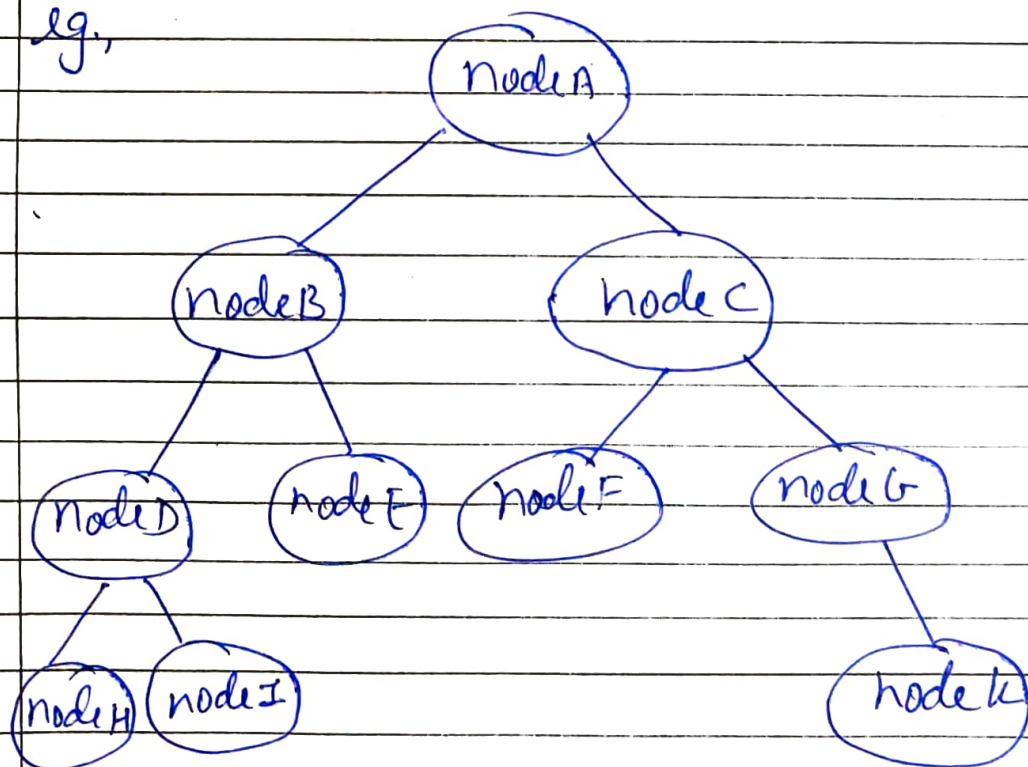 eg.,
nodeA
nodeB nodeC
nodeD nodeE nodeF nodeG
nodeH nodeI nodeK